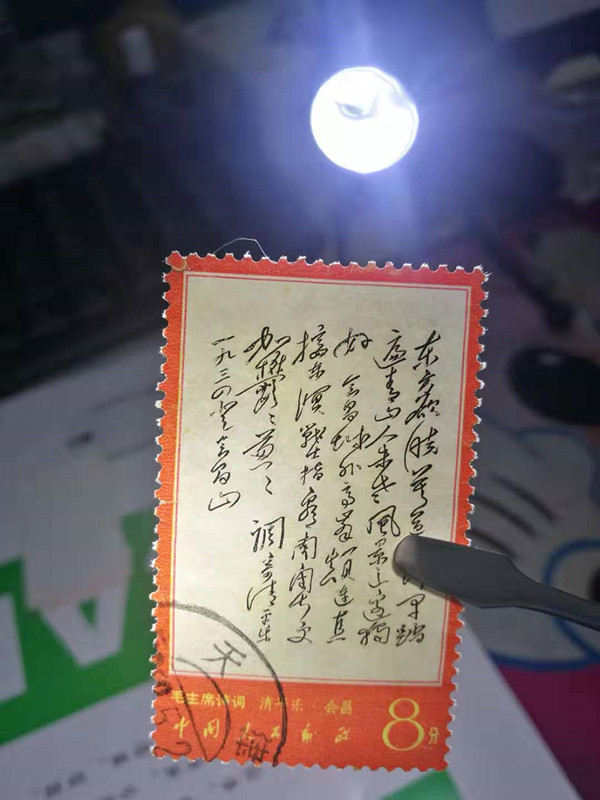 东方欲晓莫道行早踏
遍青山人未老風景这边独
好 会昌城外高峰颠连直
接东溟戰士指看南粤更
加鬱鬱葱葱 调寄清平乐
一九三四 登会昌山
毛主席诗词 清平乐·会昌
中国人民邮政
8分
天津